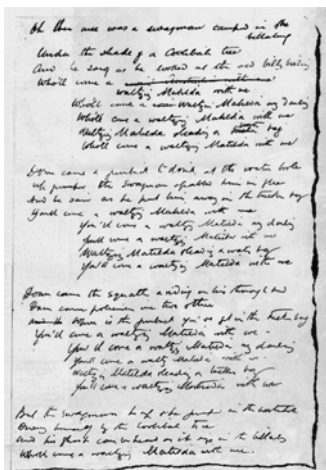 Oh there once was a swagman camped in the
billabong
Under the shade of a Coolibah tree
And he sang as he looked at the old billy boiling
Who'll come a
waltzing Matilda with me
Who'll come a waltzing Matilda my darling
Who'll come a waltzing Matilda with me
Waltzing Matilda leading a water bag
Who'll come a waltzing Matilda with me
Down came a jumbuck to drink at the water hole
Up jumped the swagman & grabbed him in glee
And he said as he put him away in the tucker bag
You'll come a waltzing Matilda with me
You'll come a waltzing Matilda my darling
You'll come a waltzing Matilda with me
Waltzing Matilda leading a water bag
You'll come a waltzing Matilda with me
Down came the squatter a riding on his thoroughbred
Down came policemen one two three
Whose is the jumbuck you've got in the tucker bag
You'll come a waltzing Matilda with me
You'll come a waltzing Matilda my darling
You'll come a waltzing Matilda with me
Waltzing Matilda leading a water bag
You'll come a waltzing Matilda with me
But the swagman he up & he jumped in the water hole
Drowning himself by the Coolibah tree
And his ghost can be heard as it sings in the billabong
Who'll come a waltzing Matilda with me.